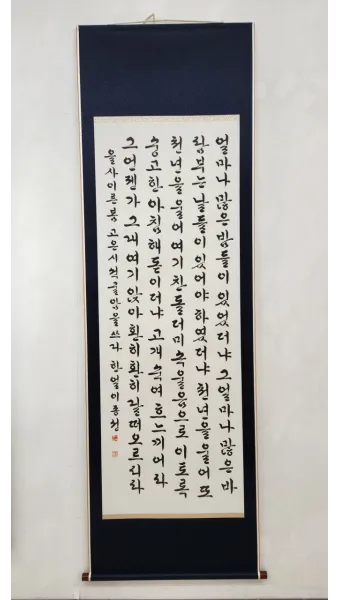 얼마나 많은 밤들이 있었더냐 그 얼마나 많은 바
람 부는 날들이 있어야 하였더냐 천년을 울어 또
천년을 울어 여기 찬 돌더미 속 울음으로 이토록
숭고한 아침 해 돋이더냐 고개 숙여 흐느끼어라
그 언젠가 그대 여기 앉아 환히 환히 눈떠 오르리라
을사 이른봄 고은 시 석굴암을 쓰다 한얼 이종선